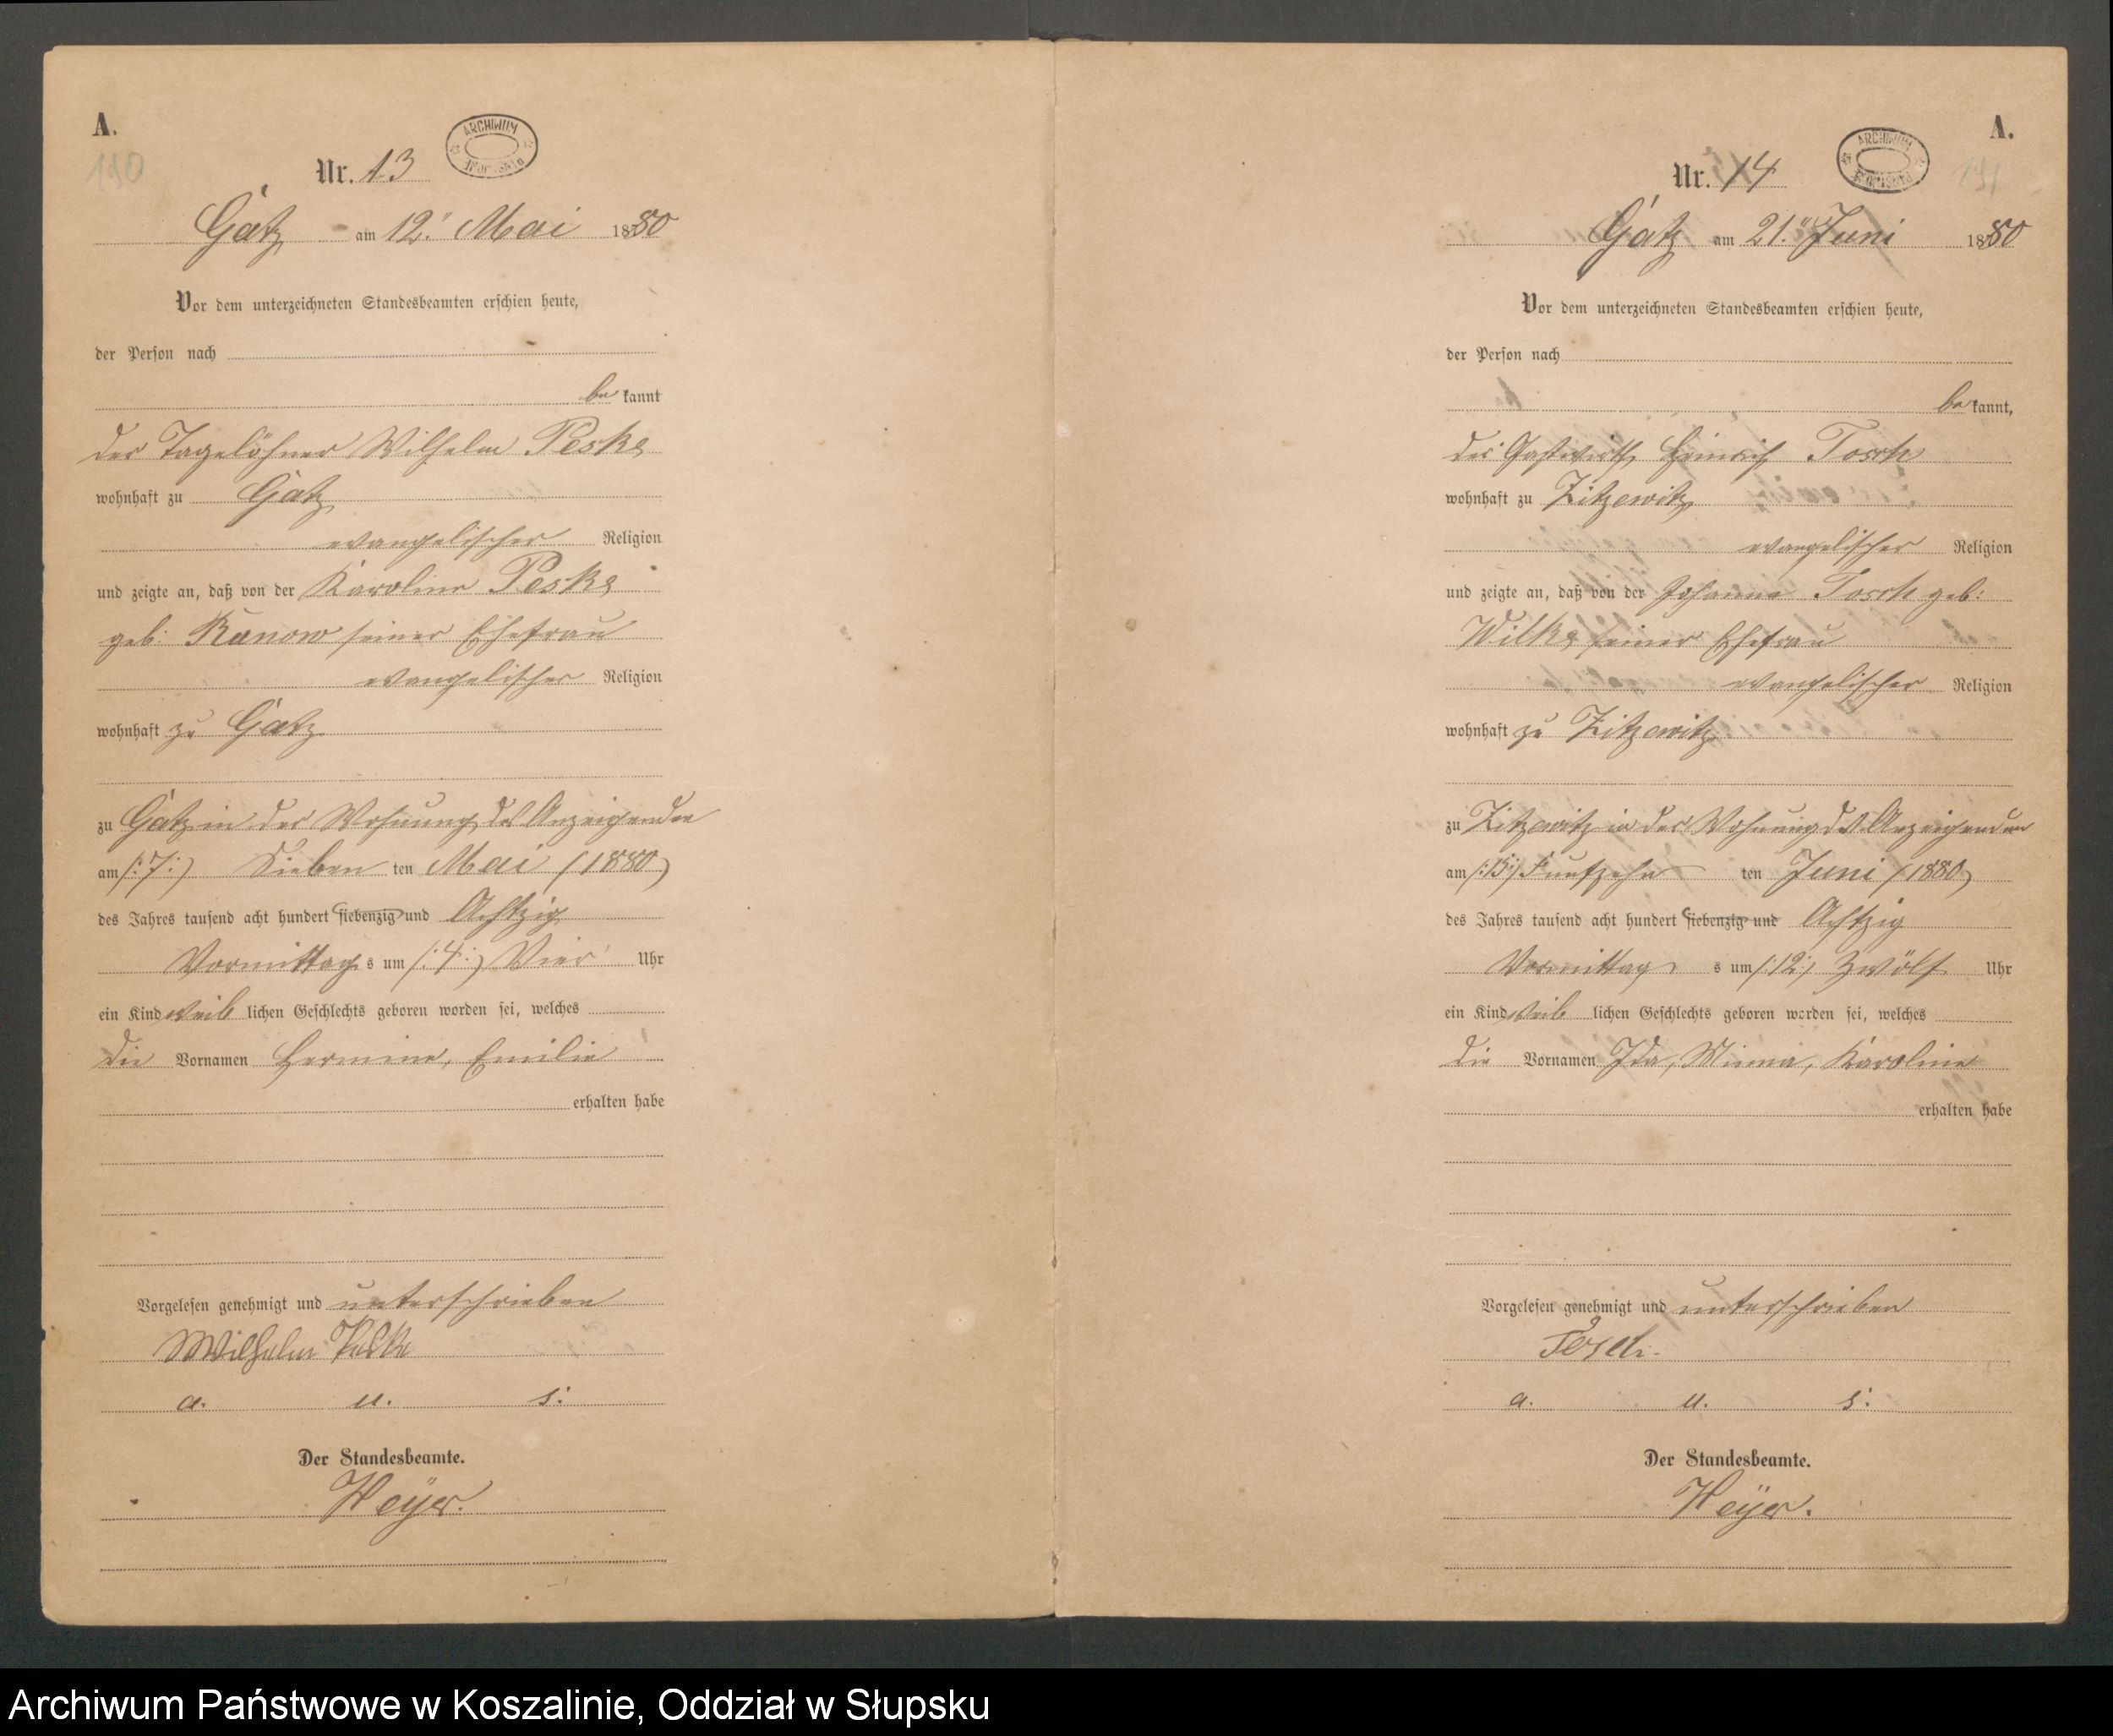 A.
190
Nr. 13
ARCHIWUM
Gatz am 12. Mai 1880
Vor dem unterzeichneten Standesbeamten erschien heute,
der Person nach
be kannt
der Tagelöhner Wilhelm Peske
wohnhaft zu Gatz
evangelischer Religion
und zeigte an, daß von der Karoline Peske
geb: Kanow seiner Ehefrau
evangelischer Religion
wohnhaft zu Gatz
zu Gatz in der Wohnung des Anzeigenden
am /:7:/ Sieben ten Mai /1880/
des Jahres tausend acht hundert siebenzig und Achtzig
Vormittag s um /:4:/ Vier Uhr
ein Kind weib lichen Geschlechts geboren worden sei, welches
die Vornamen Hermine, Emilie
erhalten habe
Vorgelesen genehmigt und unterschrieben
Wilhelm Peske
a. u. s.
Der Standesbeamte.
Heÿer.
A.
191
Nr. 14
ARCHIWUM
Gatz am 21. Juni 1880
Vor dem unterzeichneten Standesbeamten erschien heute,
der Person nach
be kannt,
der Gastwirth Heinrich Tosch
wohnhaft zu Zitzewitz
evangelischer Religion
und zeigte an, daß von der Johanna Tosch geb:
Wilke seiner Ehefrau
evangelischer Religion
wohnhaft zu Zitzewitz
zu Zitzewitz in der Wohnung des Anzeigenden
am /:15:/ Funfzehn ten Juni /1880/
des Jahres tausend acht hundert siebenzig und Achtzig
Vormittag s um /:12:/ Zwölf Uhr
ein Kind weib lichen Geschlechts geboren worden sei, welches
die Vornamen Ida, Minna, Karoline
erhalten habe
Vorgelesen genehmigt und unterschrieben
Tosch.
a. u. s.
Der Standesbeamte.
Heÿer.
Archiwum Państwowe w Koszalinie, Oddział w Słupsku